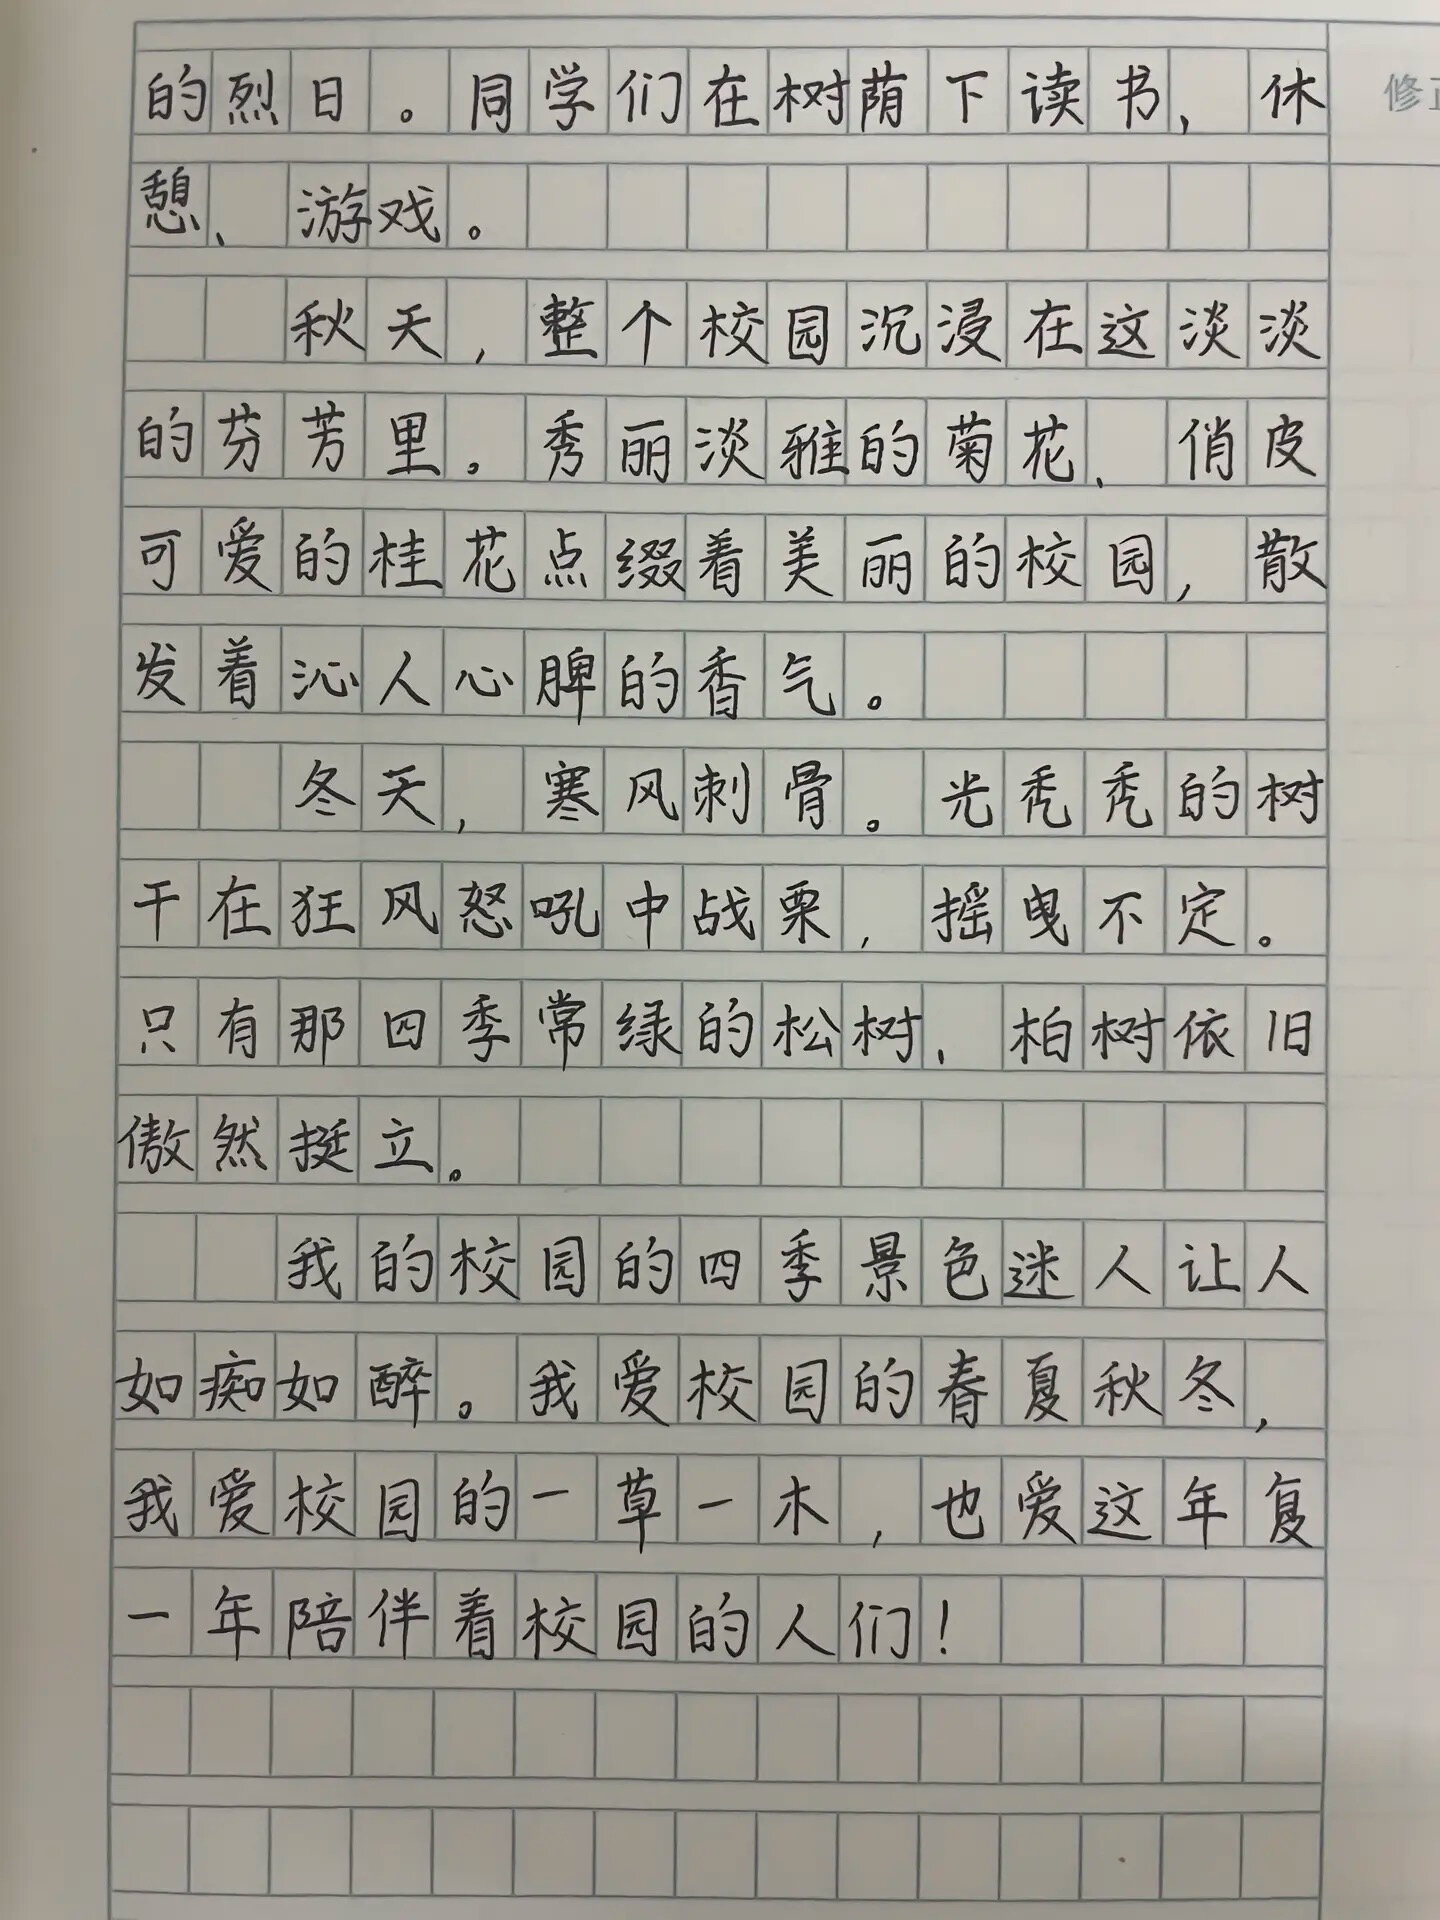 的烈日。同学们在树荫下读书、休
修正
憩、游戏。
秋天，整个校园沉浸在这淡淡
的芬芳里。秀丽淡雅的菊花、俏皮
可爱的桂花点缀着美丽的校园，散
发着沁人心脾的香气。
冬天，寒风刺骨。光秃秃的树
干在狂风怒吼中战栗，摇曳不定。
只有那四季常绿的松树、柏树依旧
傲然挺立。
我的校园的四季景色迷人让人
如痴如醉。我爱校园的春夏秋冬，
我爱校园的一草一木，也爱这年复
一年陪伴着校园的人们！